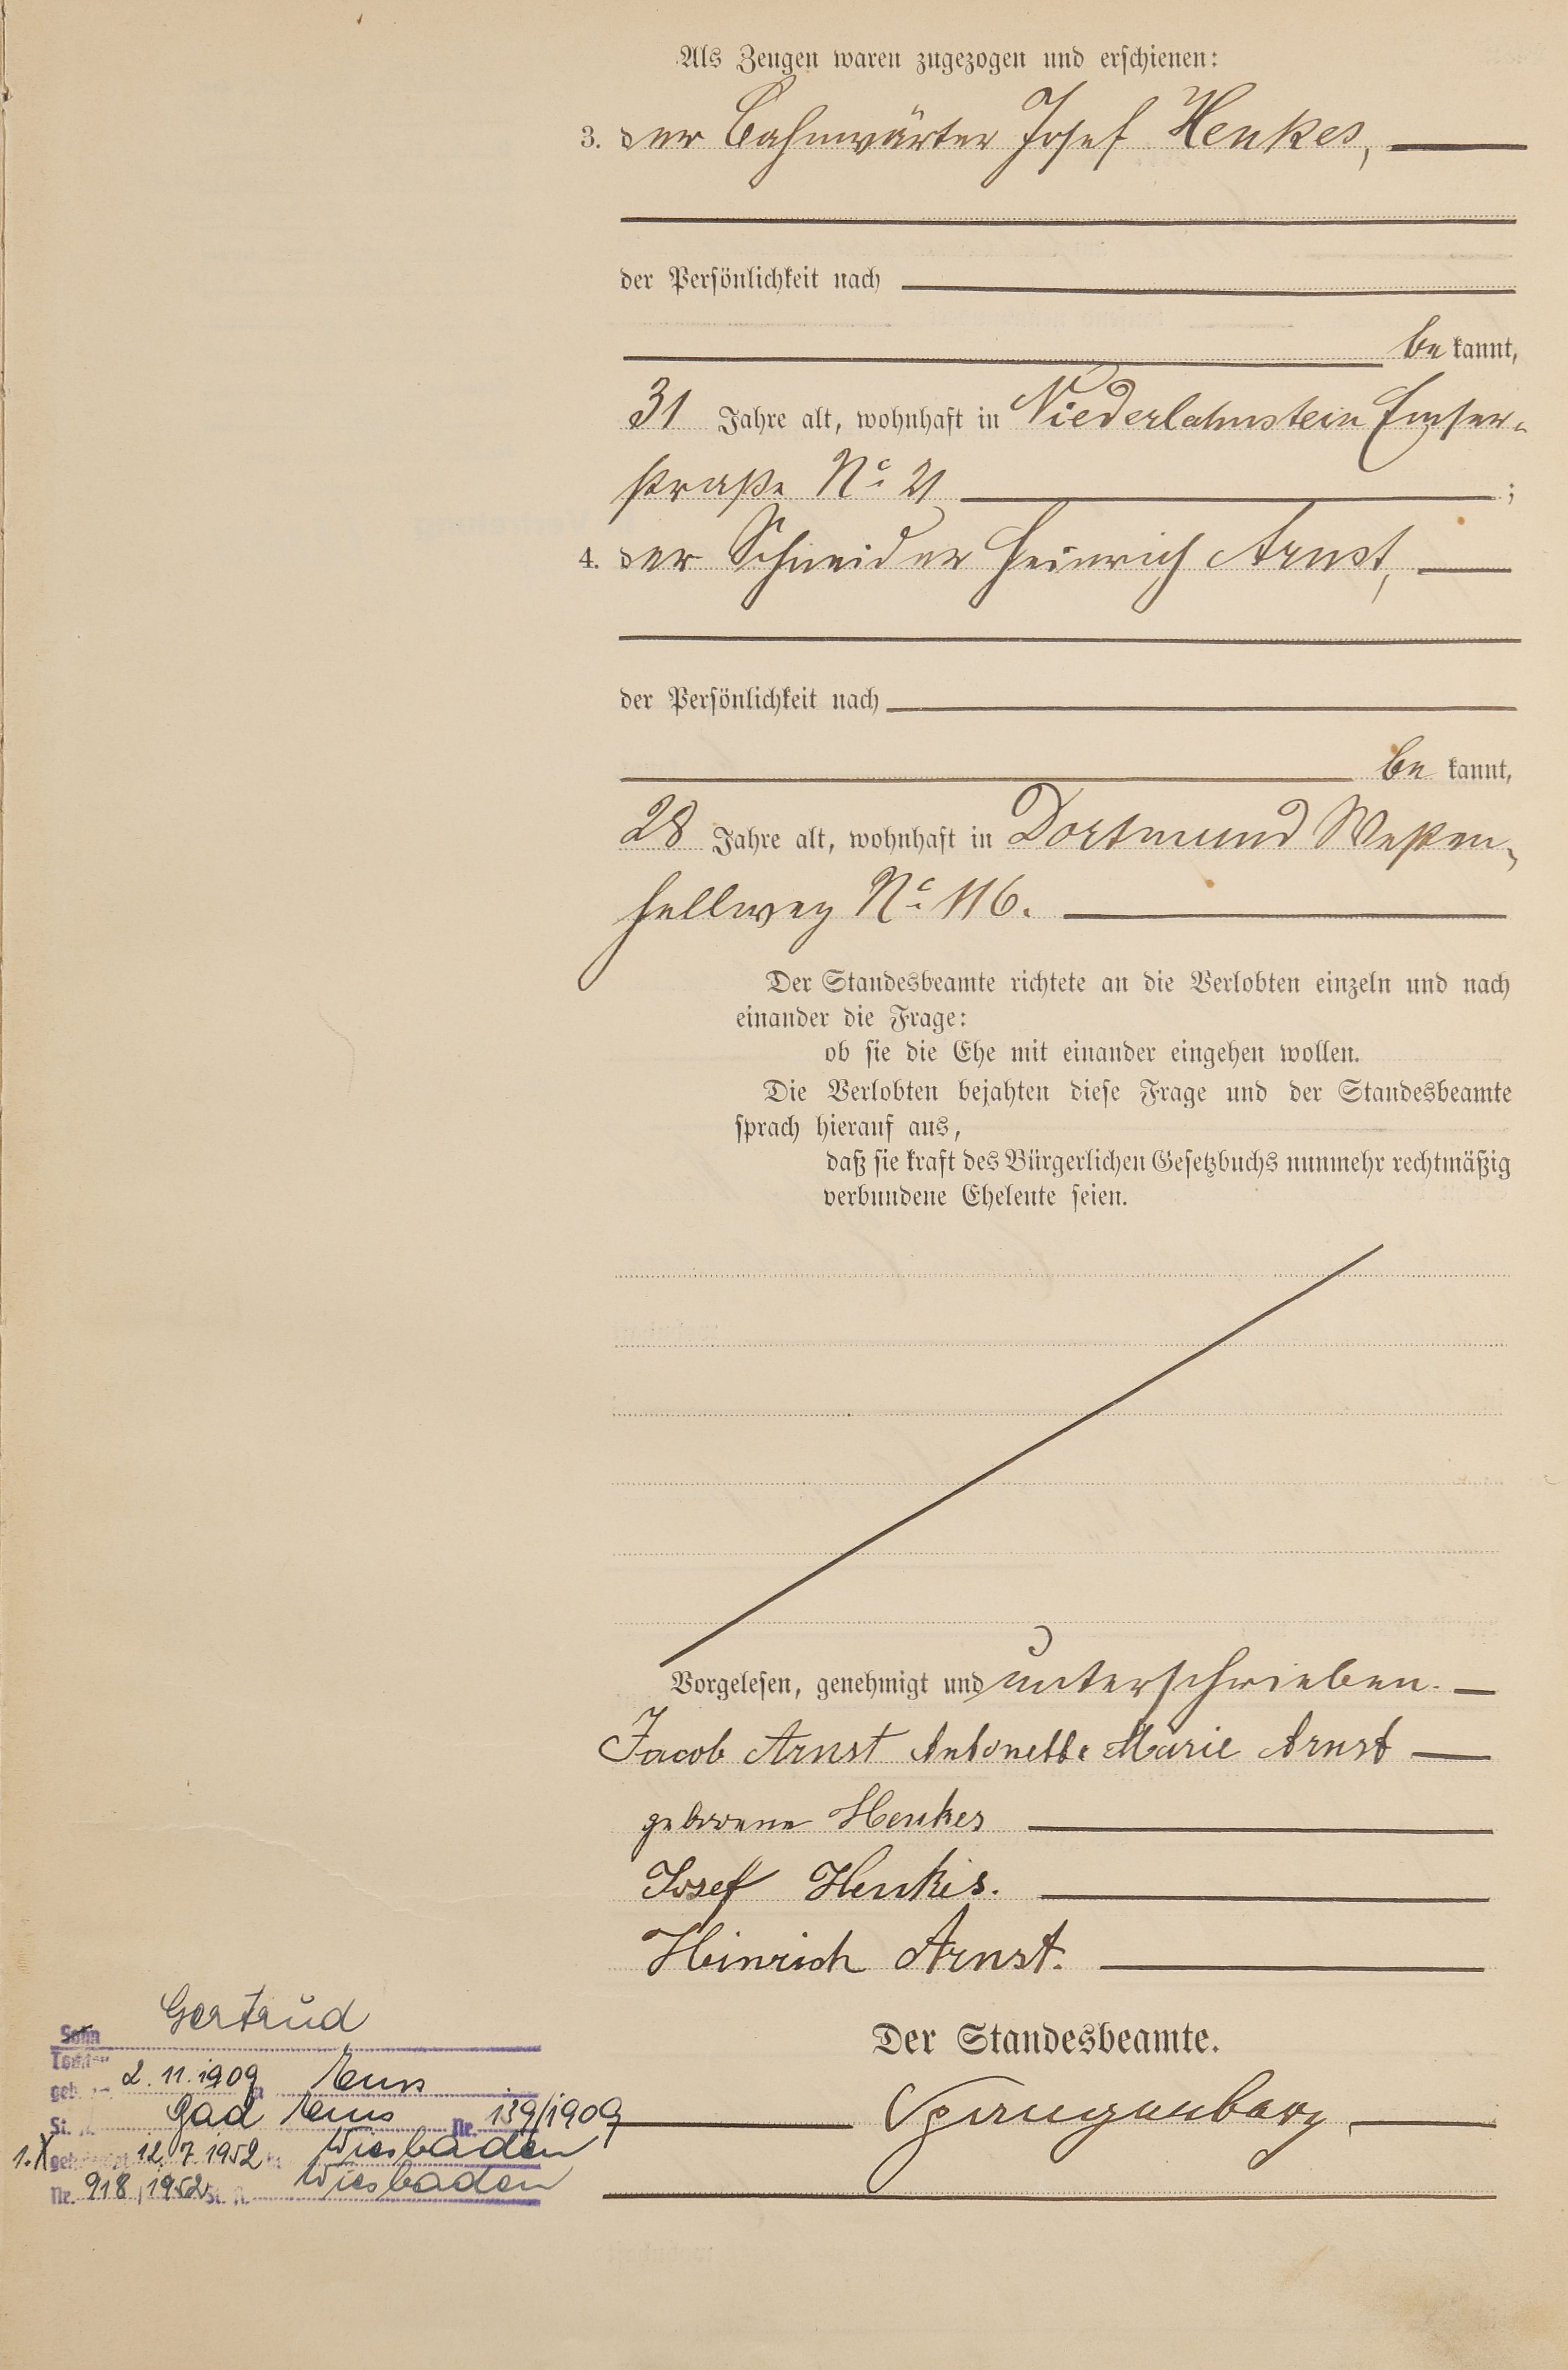 Als Zeugen waren zugezogen und erschienen:
3. der Bahnwärter Josef Henkes,
der Persönlichkeit nach
be kannt,
31 Jahre alt, wohnhaft in Niederlahnstein Emser-
straße No 21 ;
4. der Schneider Heinrich Arnst,
der Persönlichkeit nach
be kannt,
28 Jahre alt, wohnhaft in Dortmund Westen-
hellweg No 116.
Der Standesbeamte richtete an die Verlobten einzeln und nach
einander die Frage:
ob sie die Ehe mit einander eingehen wollen.
Die Verlobten bejahten diese Frage und der Standesbeamte
sprach hierauf aus,
daß sie kraft des Bürgerlichen Gesetzbuchs nunmehr rechtmäßig
verbundene Eheleute seien.
Vorgelesen, genehmigt und unterschrieben.
Jacob Arnst Antonette Marie Arnst
geborene Henkes
Josef Henkes.
Heinrich Arnst.
Der Standesbeamte.
Spangenberg
Gertrud
Sohn
Tochter
geb. 2.11.1909 in Ems
St. A. Bad Ems Nr. 139/1909
1.X 12.7.1952 Wiesbaden
Nr. 918/1952 St. A. Wiesbaden